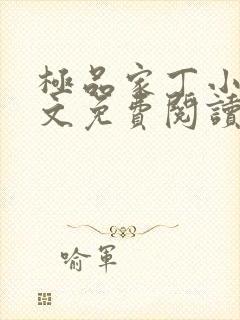 極品家丁小
文免費閱讀
喻軍